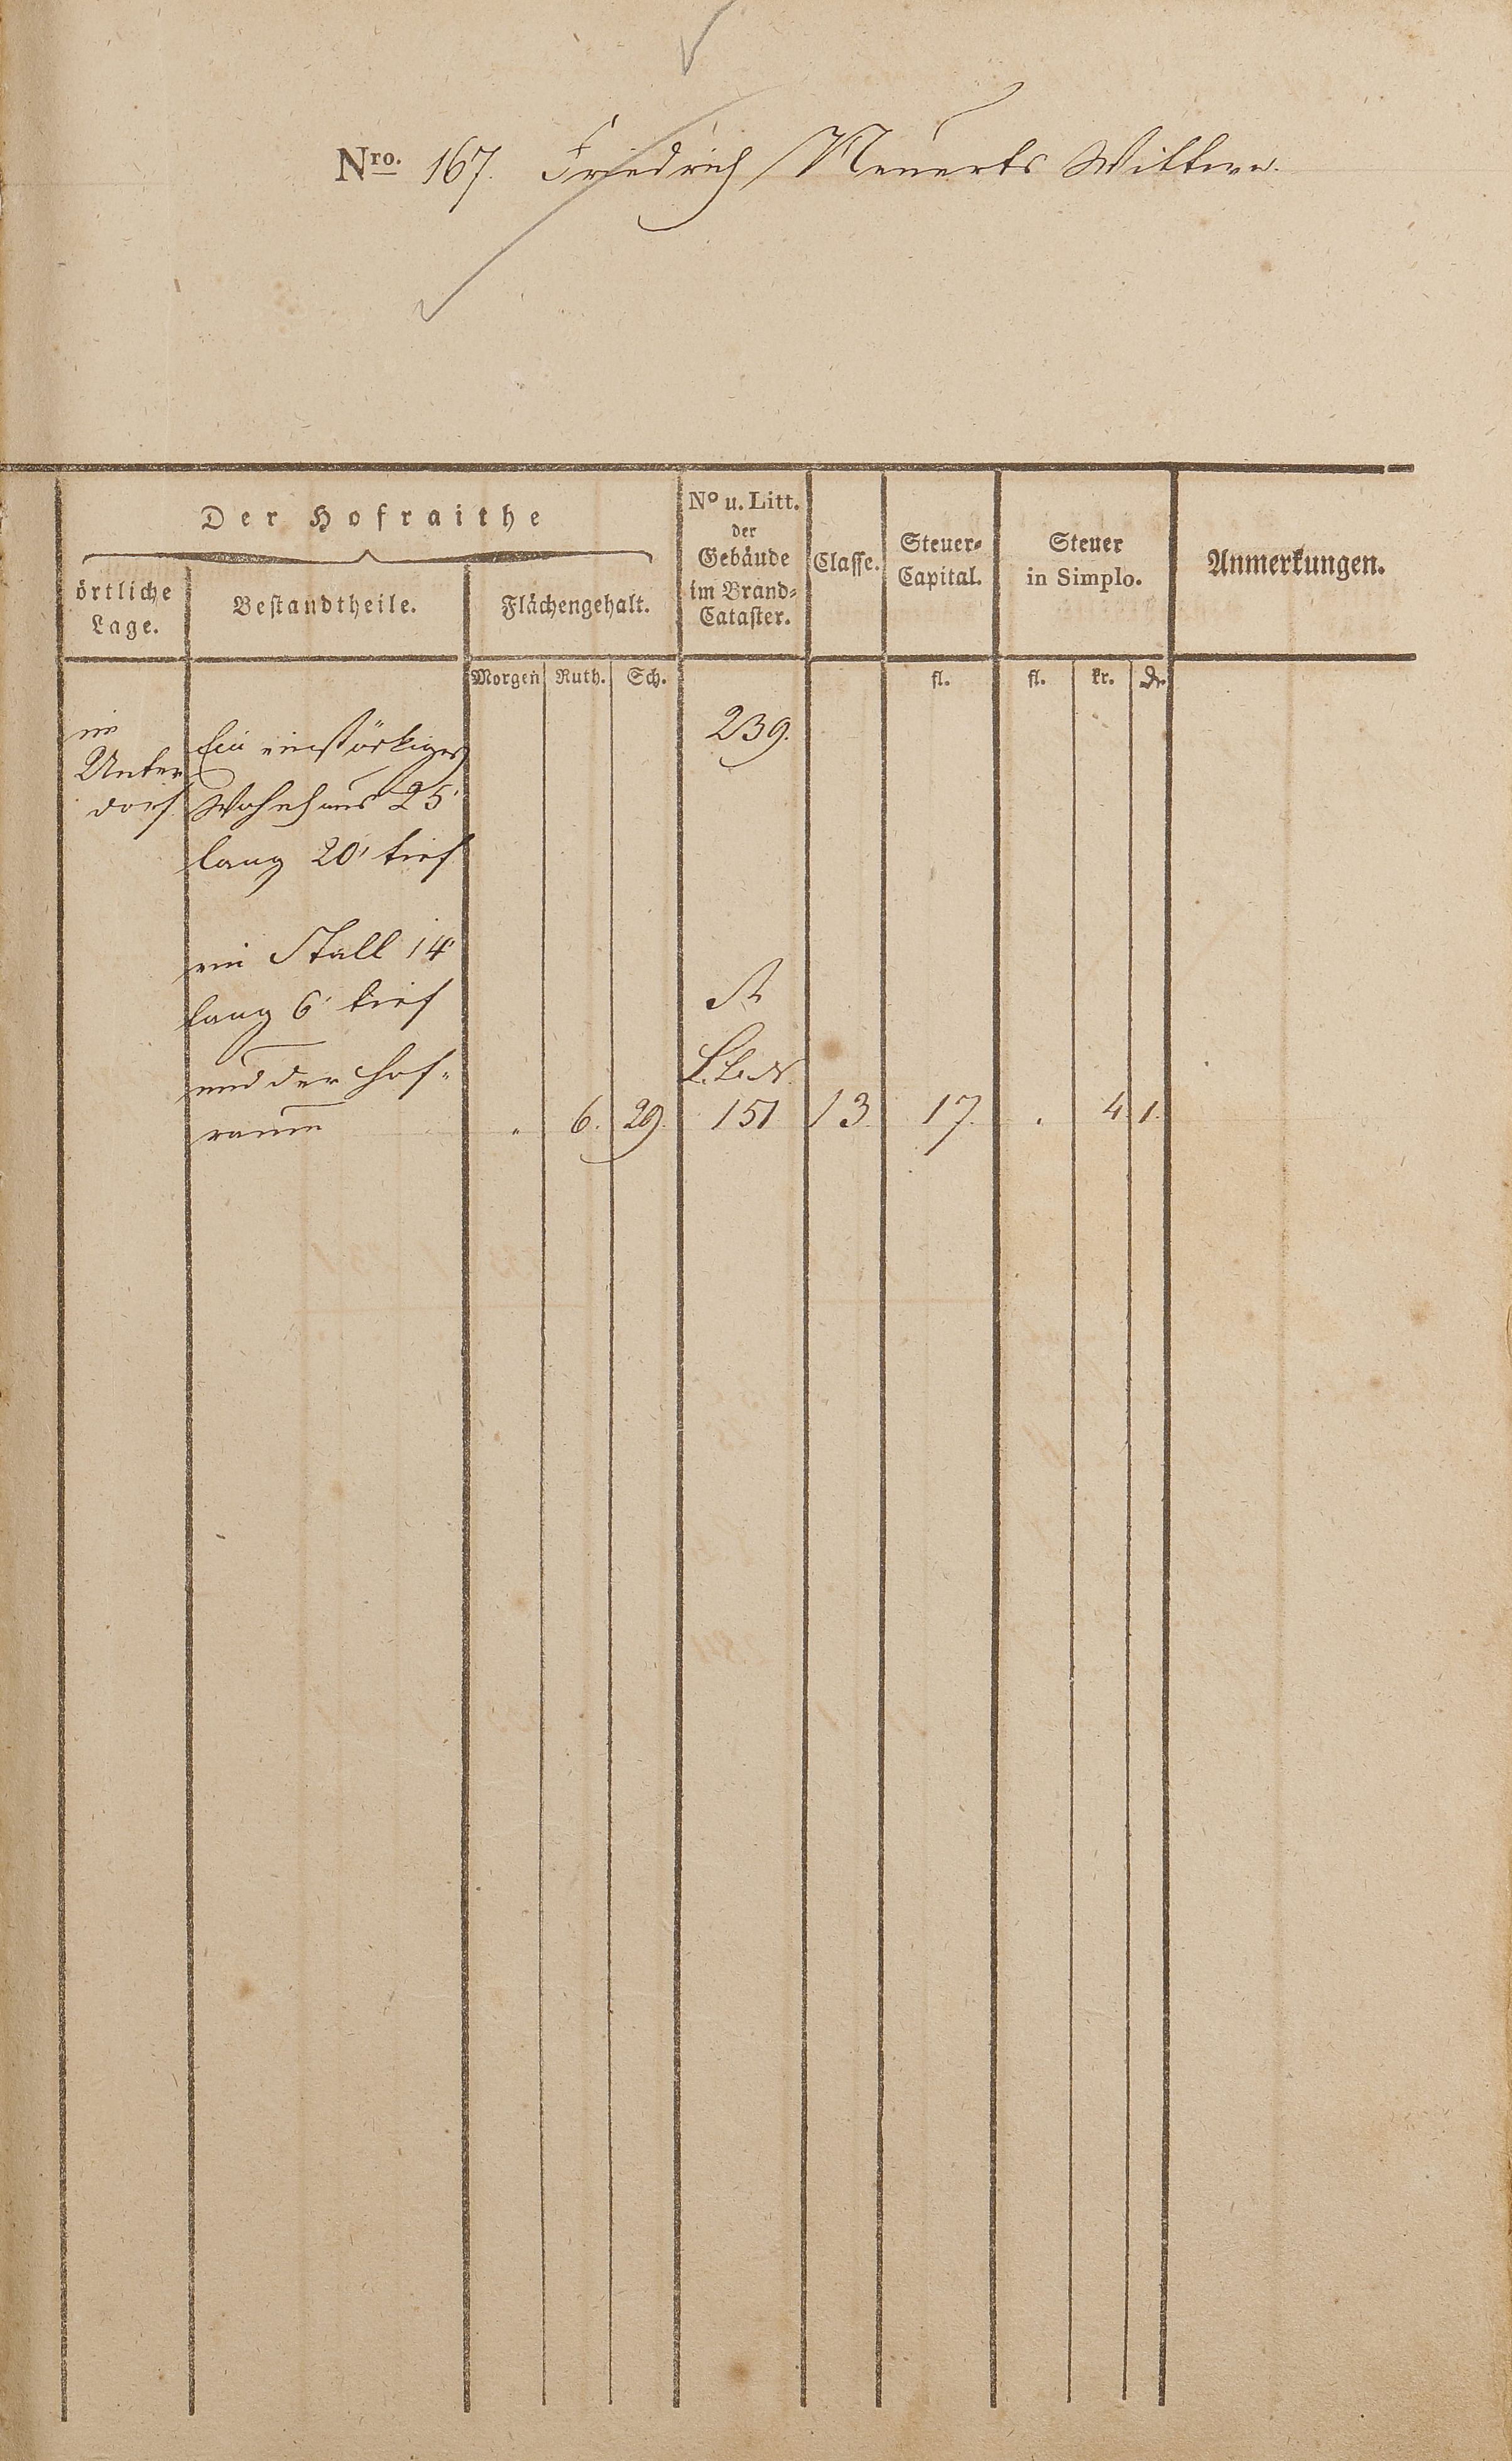 Nro. 167. Friedrich Neuerts Wittwe.
Der Hofraithe
örtliche Lage.
Bestandtheile.
Flächengehalt.
No u. Litt. der Gebäude im Brand-Cataster.
Classe.
Steuer-Capital.
Steuer in Simplo.
Anmerkungen.
Morgen Ruth. Sch. fl. fl. kr. dr.
im
Unter
dorf.
Ein einstöckiges 239.
Wohnhaus 25'
lang 20' tief
ein Stall 14'
lang 6' tief
und der Hof-
raum " 6. 29. 151 13. 17. . 4. 1.